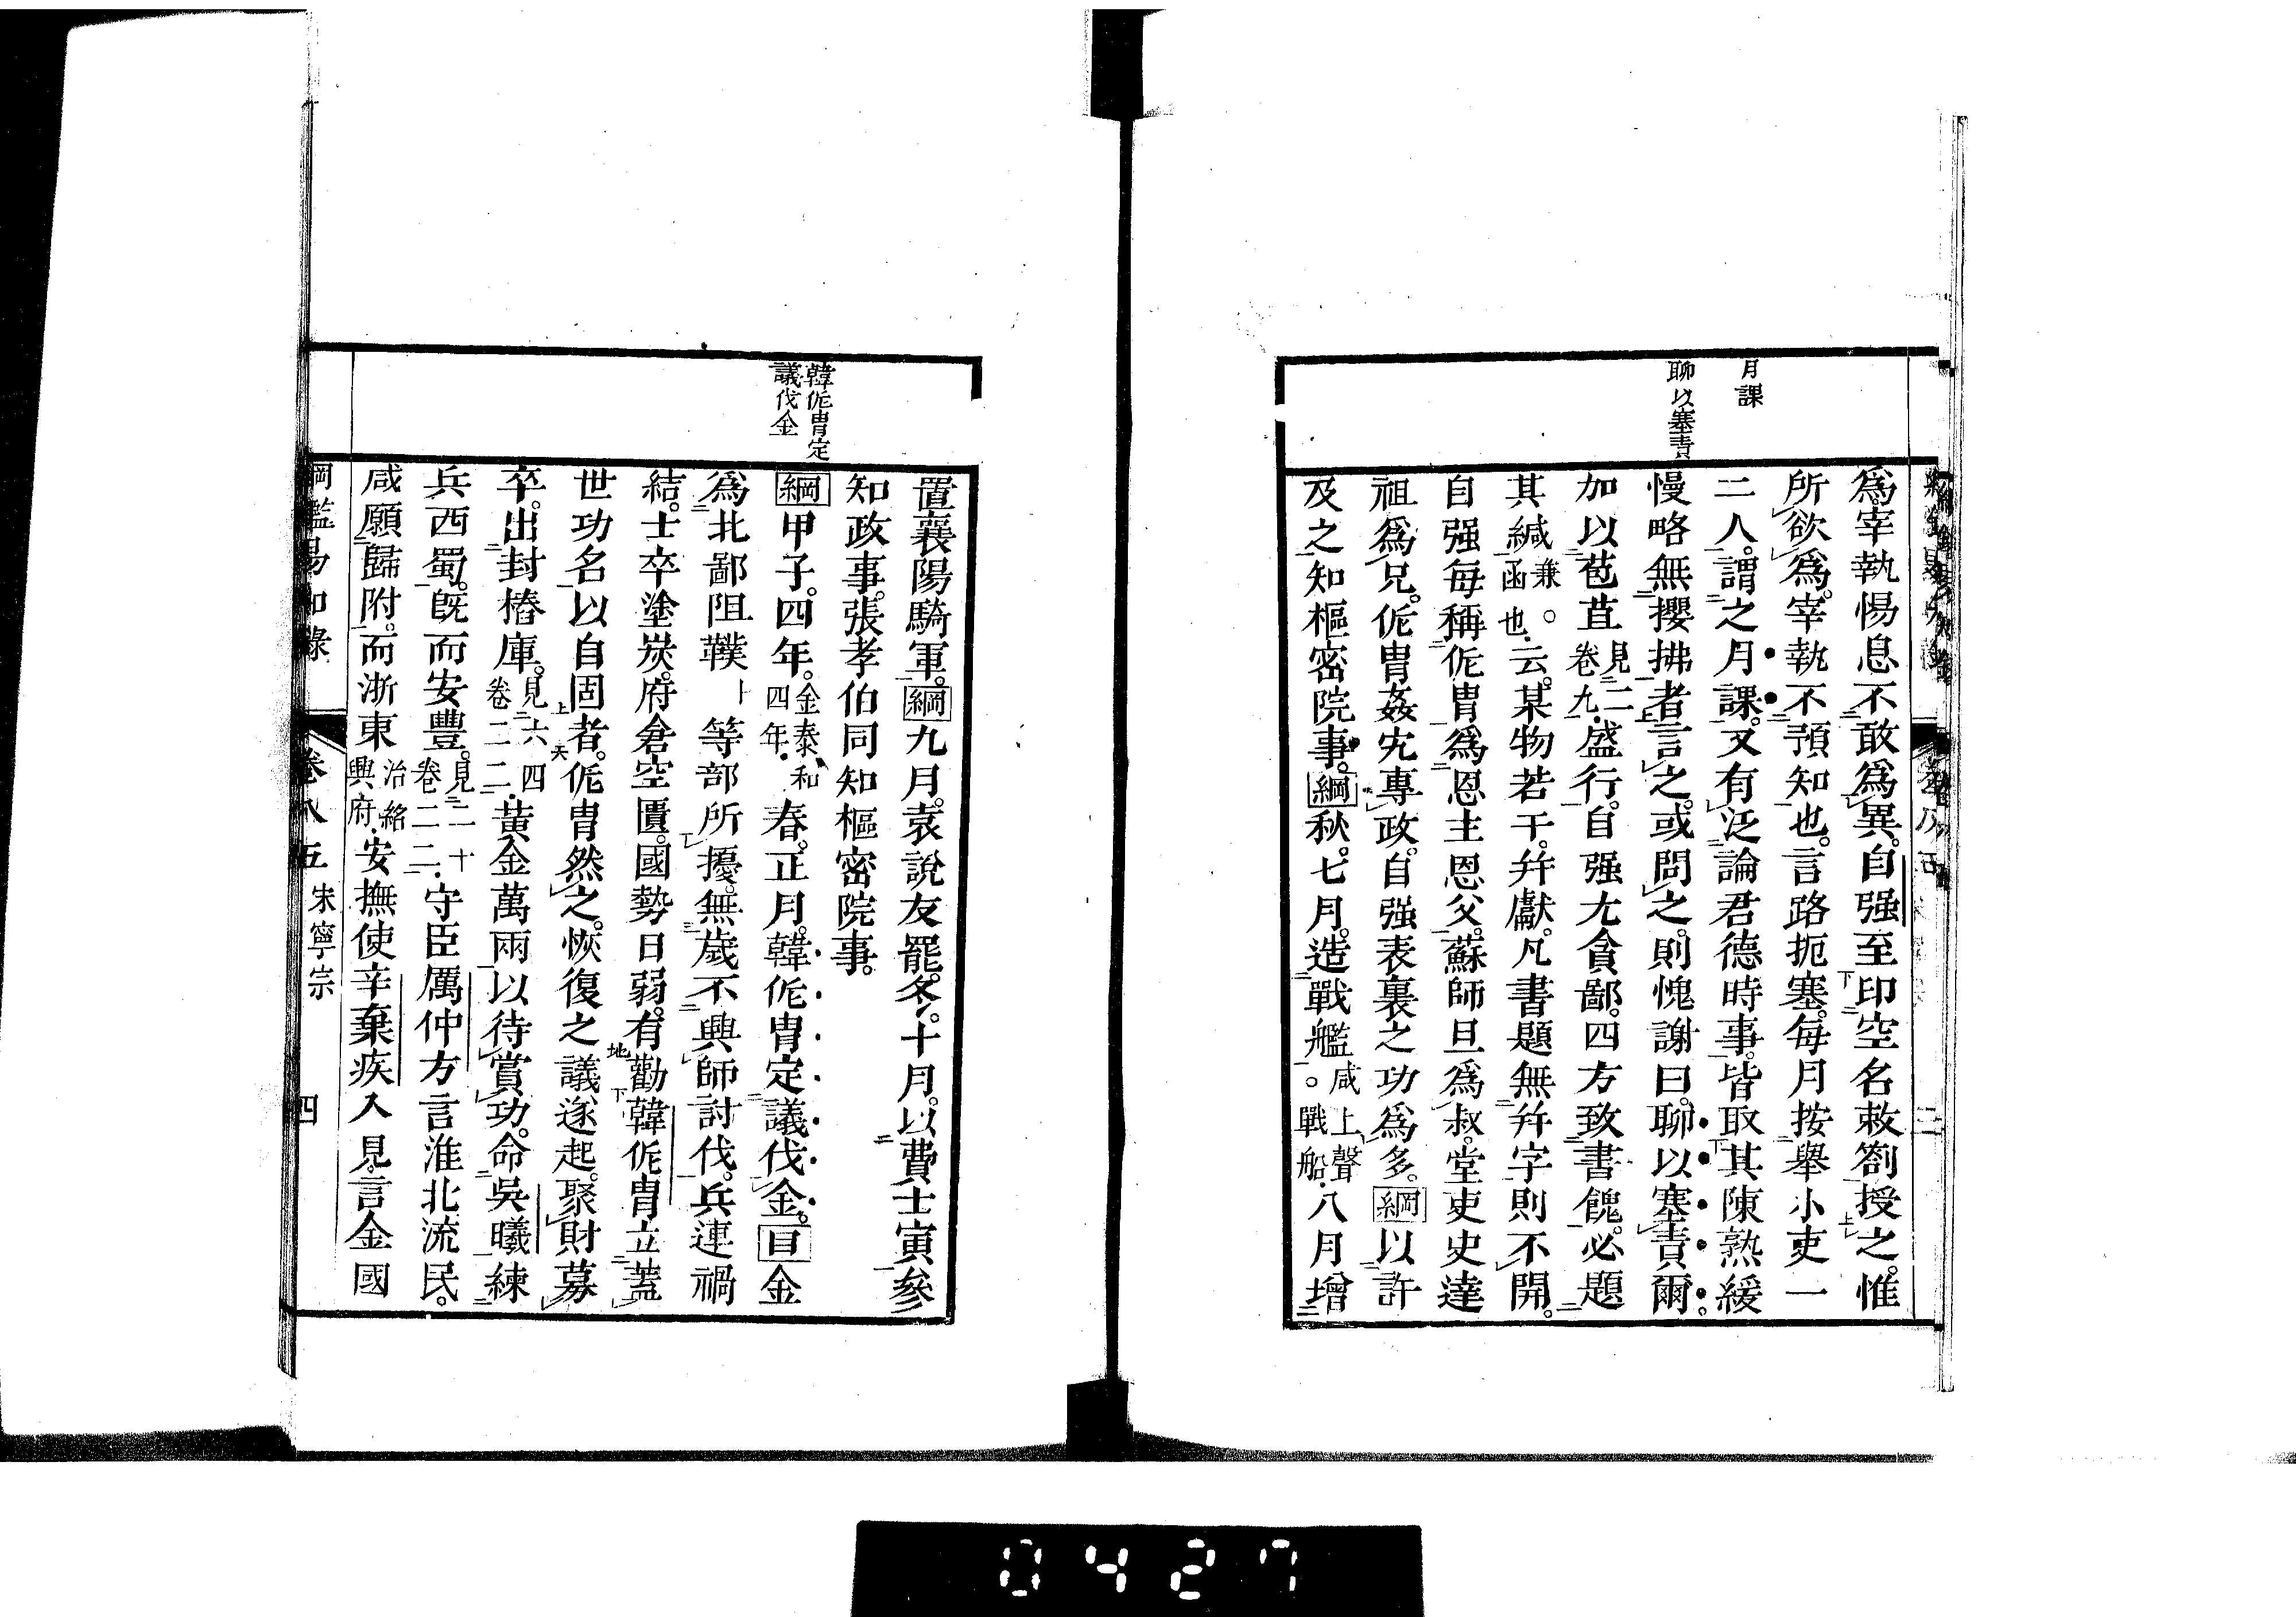 月課
聊以塞責
爲宰執惕息不敢爲異。自强至印空名敕劄授之。惟
所欲爲。宰執不預知也。言路扼塞。每月按舉小吏一
二人。謂之月課。又有泛論君德時事。皆取其陳熟緩
慢略無攖拂者言之。或問之。則愧謝曰。聊以塞責爾。
加以苞苴見二卷九.盛行。自强尤貪鄙。四方致書餽。必題
其緘兼。函也.云。某物若干。幷獻。凡書題無幷字則不開。
自强每稱侂胄爲恩主恩父。蘇師旦爲叔。堂吏史達
祖爲兄。侂胄姦宄專政。自强表裏之功爲多。綱以許
及之知樞密院事。綱秋。七月。造戰艦咸上聲。戰船.八月增
韓侂胄定
議伐金
置襄陽騎軍。綱九月。袁說友罷。冬。十月。以費士寅參
知政事。張孝伯同知樞密院事。
綱甲子。四年。金泰和四年.春。正月。韓侂胄定議伐金。目金
爲北鄙阻䪁卜等部所擾。無歲不興師討伐。兵連禍
結。士卒塗炭。府倉空匱。國勢日弱。有勸韓侂胄立蓋
世功名以自固者。侂胄然之。恢復之議遂起。聚財募
卒。出封樁庫。見六四卷二二.黃金萬兩以待賞功。命吳曦練
兵西蜀。旣而安豐。見二十卷二二.守臣厲仲方言淮北流民。
咸願歸附。而浙東治紹興府.安撫使辛棄疾入見。言金國
綱鑑易知錄
卷八五
宋寧宗
四
0427